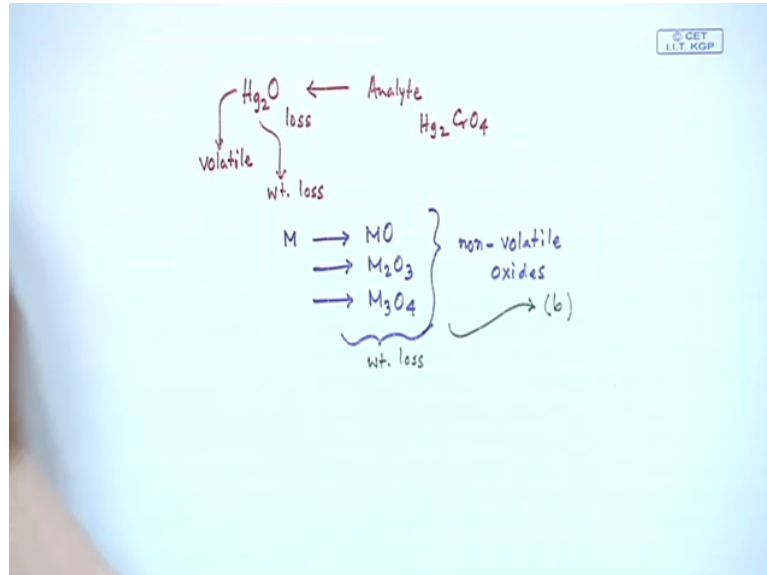 © CET
I.I.T. KGP
Hg₂O ← Analyte
loss
Hg₂CrO₄
volatile
wt. loss
M → MO
→ M₂O₃
→ M₃O₄
non-volatile
oxides
→ (b)
wt. loss